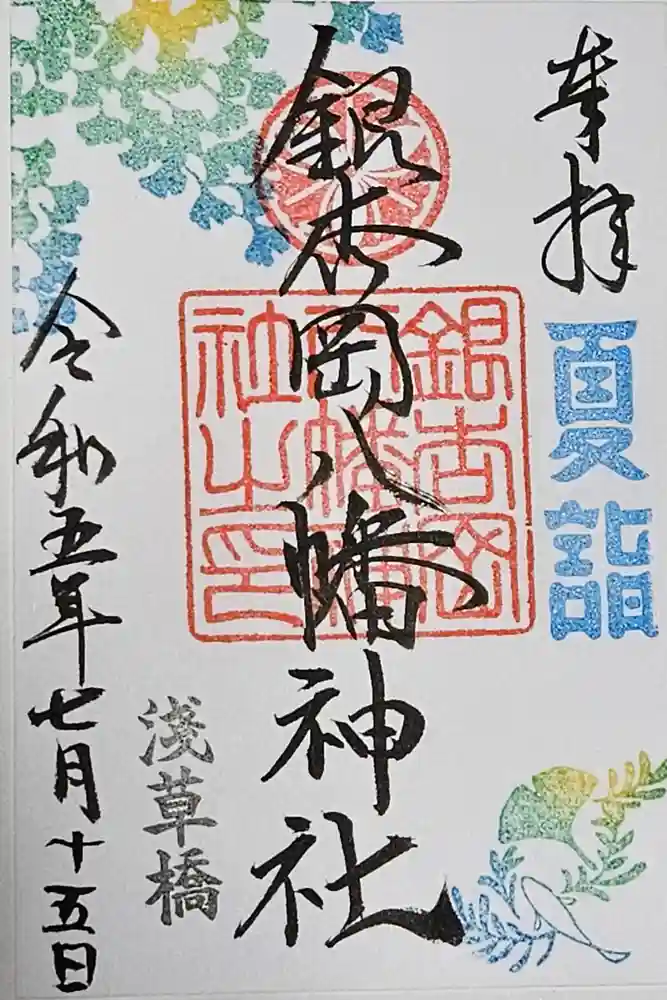 奉拝
夏詣
銀杏岡八幡神社
銀杏岡
八幡神
社之印
浅草橋
令和五年七月十五日